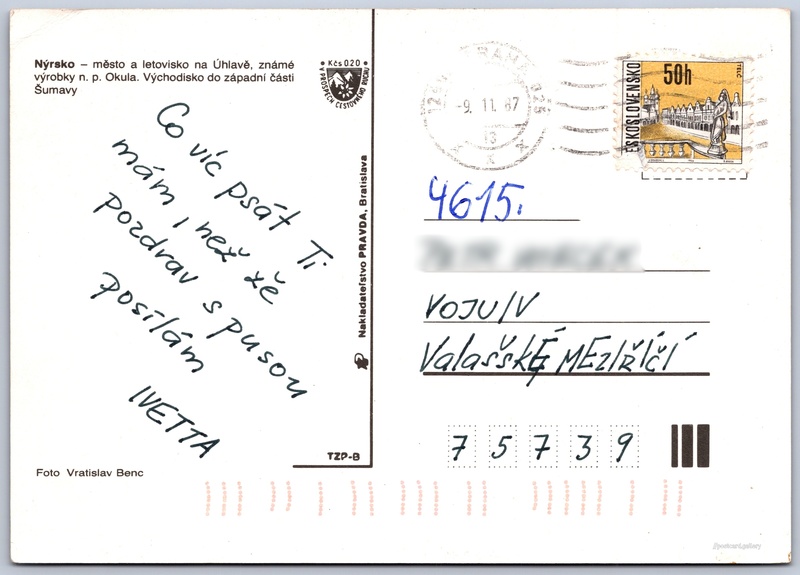 Nýrsko – město a letovisko na Úhlavě, známé
výrobky n. p. Okula. Východisko do západní části
Šumavy
Kčs 0.20
V PROSPECH CESTOVNÉHO RUCHU
Co víc psát Ti
mám, než že
pozdrav s pusou
posílám
IVETTA
Foto Vratislav Benc
Nakladateľstvo PRAVDA, Bratislava
TZP-B
-9. 11. 87
13
ČESKOSLOVENSKO
50h
TELČ
4615.
VOJU/V
Valašské MEZIŘÍČÍ
75739